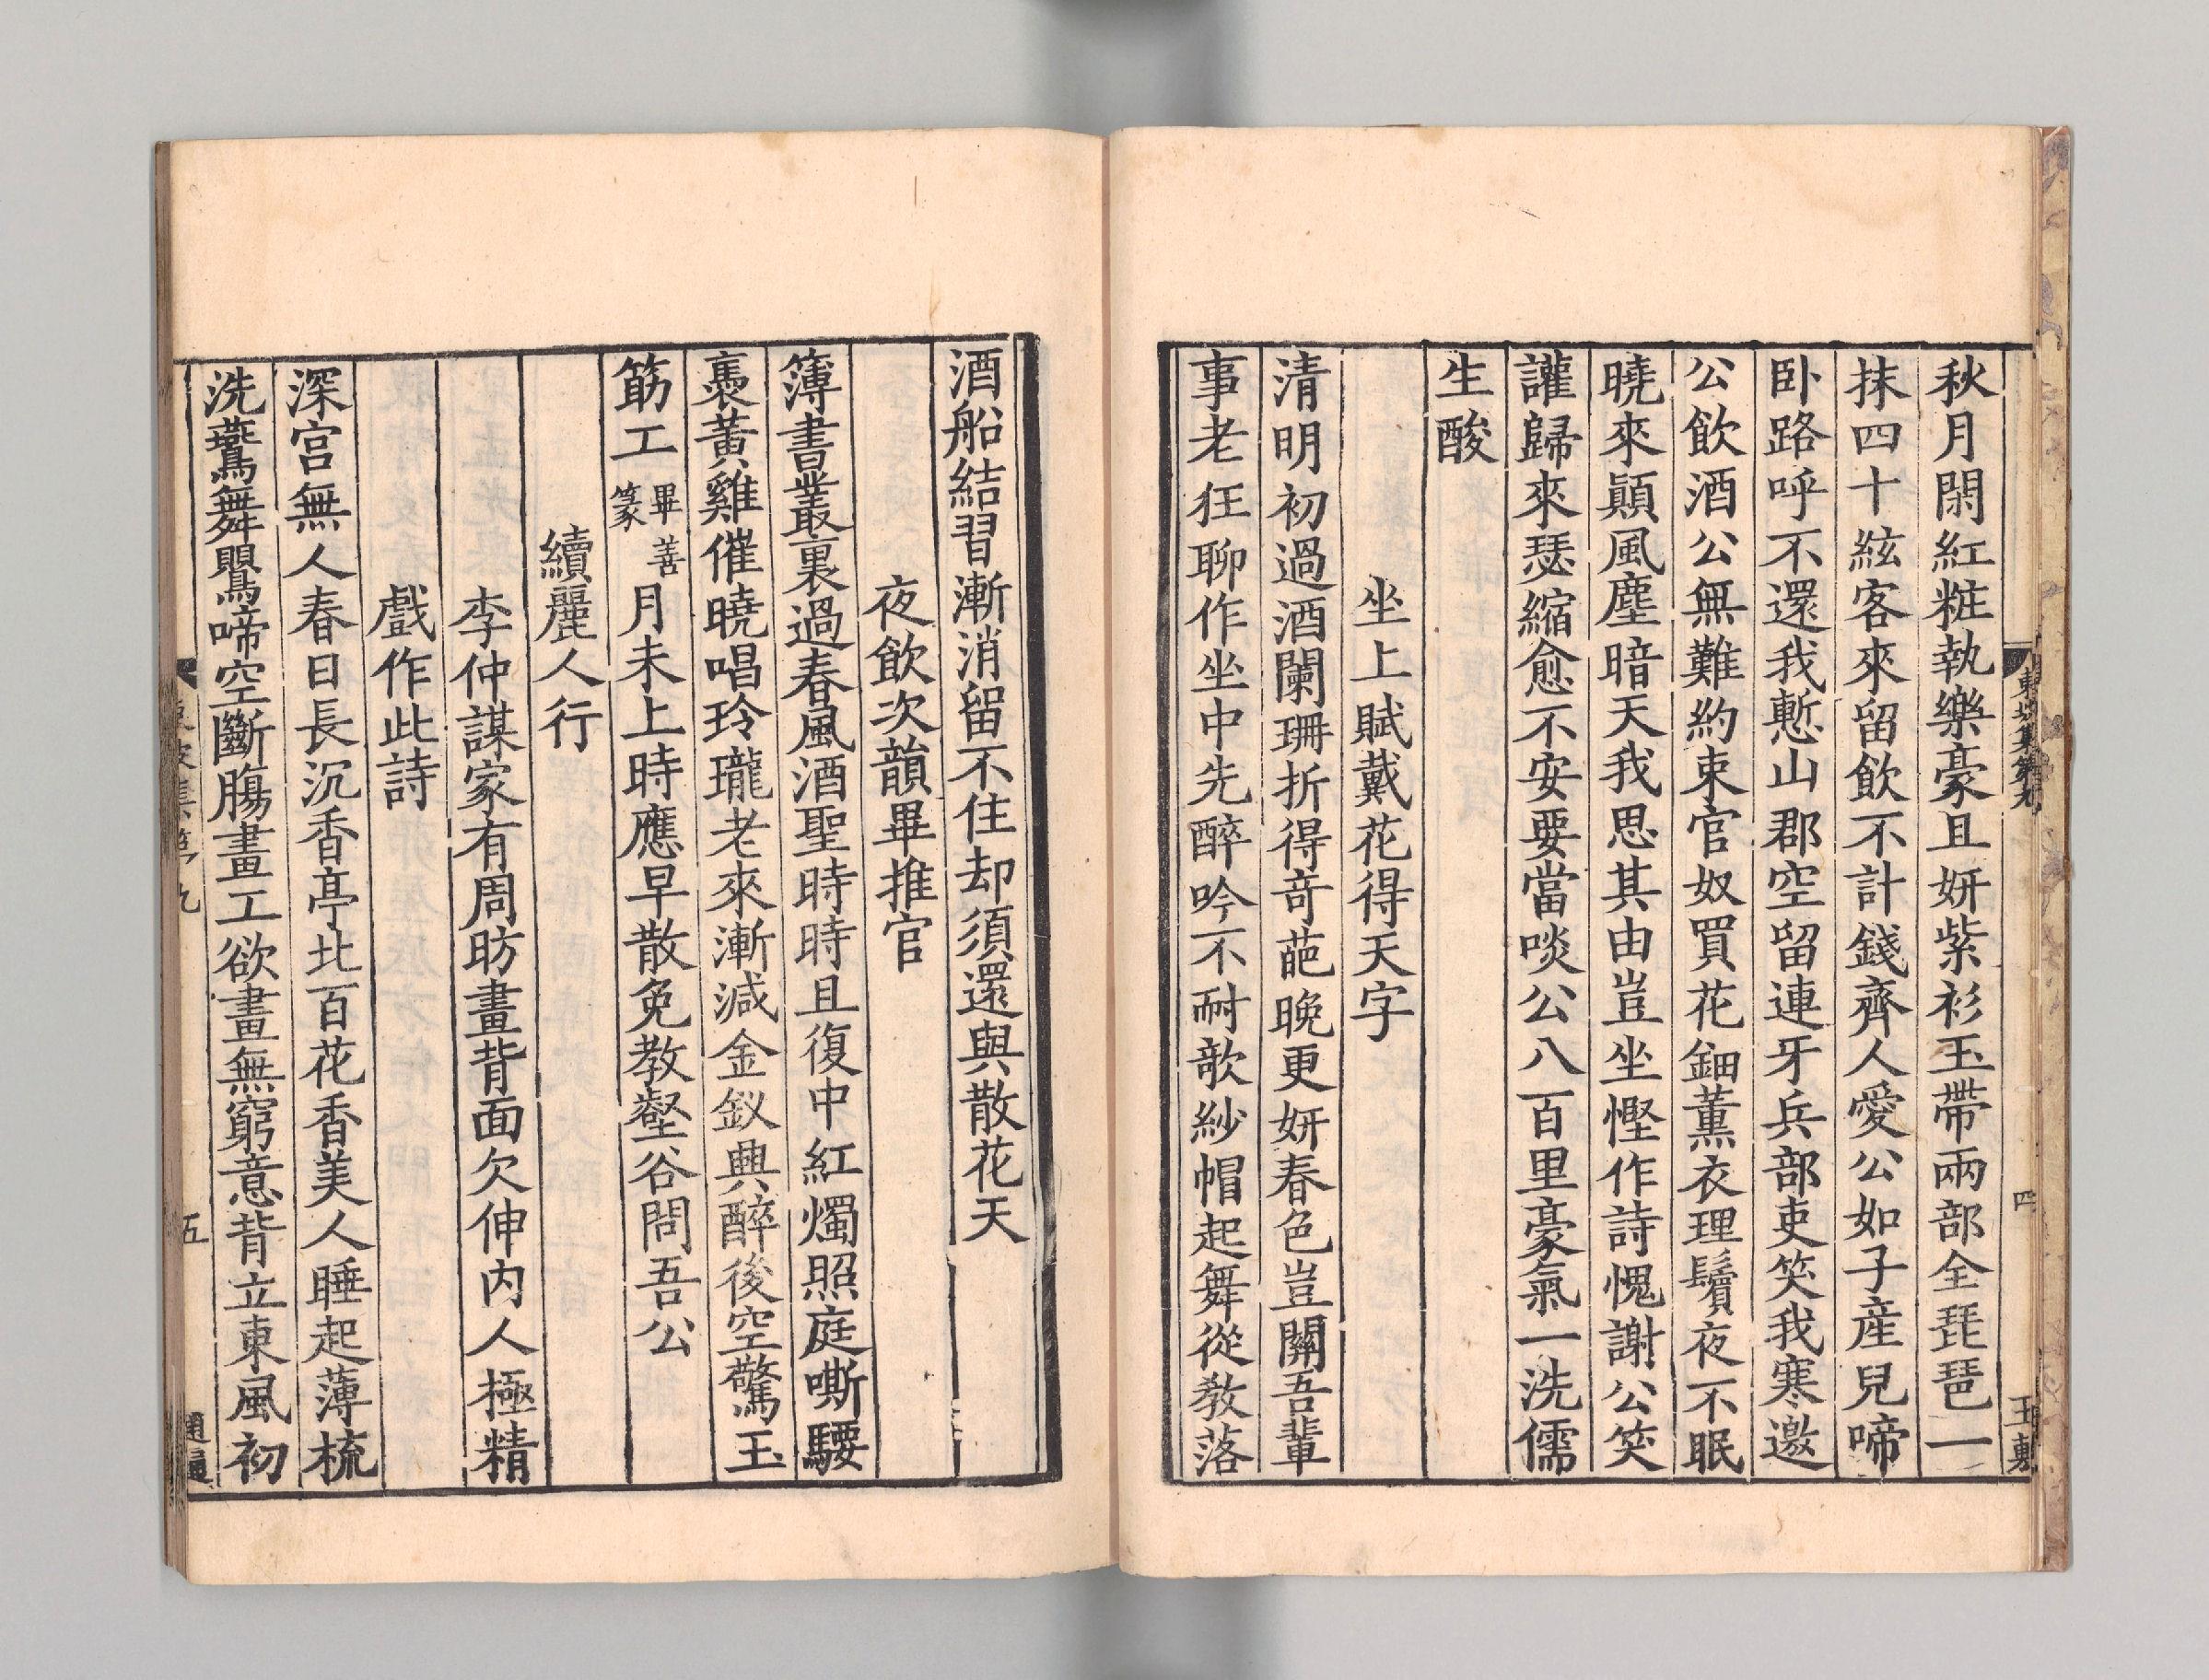 秋月閑紅粧執樂豪且妍紫衫玉帶兩部全琵琶一
抹四十絃客來留飲不計錢齊人愛公如子産兒啼
卧路呼不還我慙山郡空留連牙兵部吏笑我寒邀
公飲酒公無難約束官奴買花鈿薰衣理鬢夜不眠
曉來顚風塵暗天我思其由豈坐慳作詩愧謝公笑
讙歸來瑟縮愈不安要當啖公八百里豪氣一洗儒
生酸
坐上賦戴花得天字
清明初過酒闌珊折得竒葩晚更妍春色豈關吾輩
事老狂聊作坐中先醉吟不耐欹紗帽起舞從敎落
東坡集第九
四
酒船結習漸消留不住却須還與散花天
夜飲次韻畢推官
簿書叢裏過春風酒聖時時且復中紅燭照庭嘶騕
褭黃雞催曉唱玲瓏老來漸減金釵興醉後空驚玉
筯工
畢善
篆
月未上時應早散免教壑谷問吾公
續麗人行
李仲謀家有周昉畫背面欠伸内人極精
戲作此詩
深宮無人春日長沉香亭北百花香美人睡起薄梳
洗鷰舞鸎啼空斷腸畫工欲畫無窮意背立東風初
東坡集第九
五